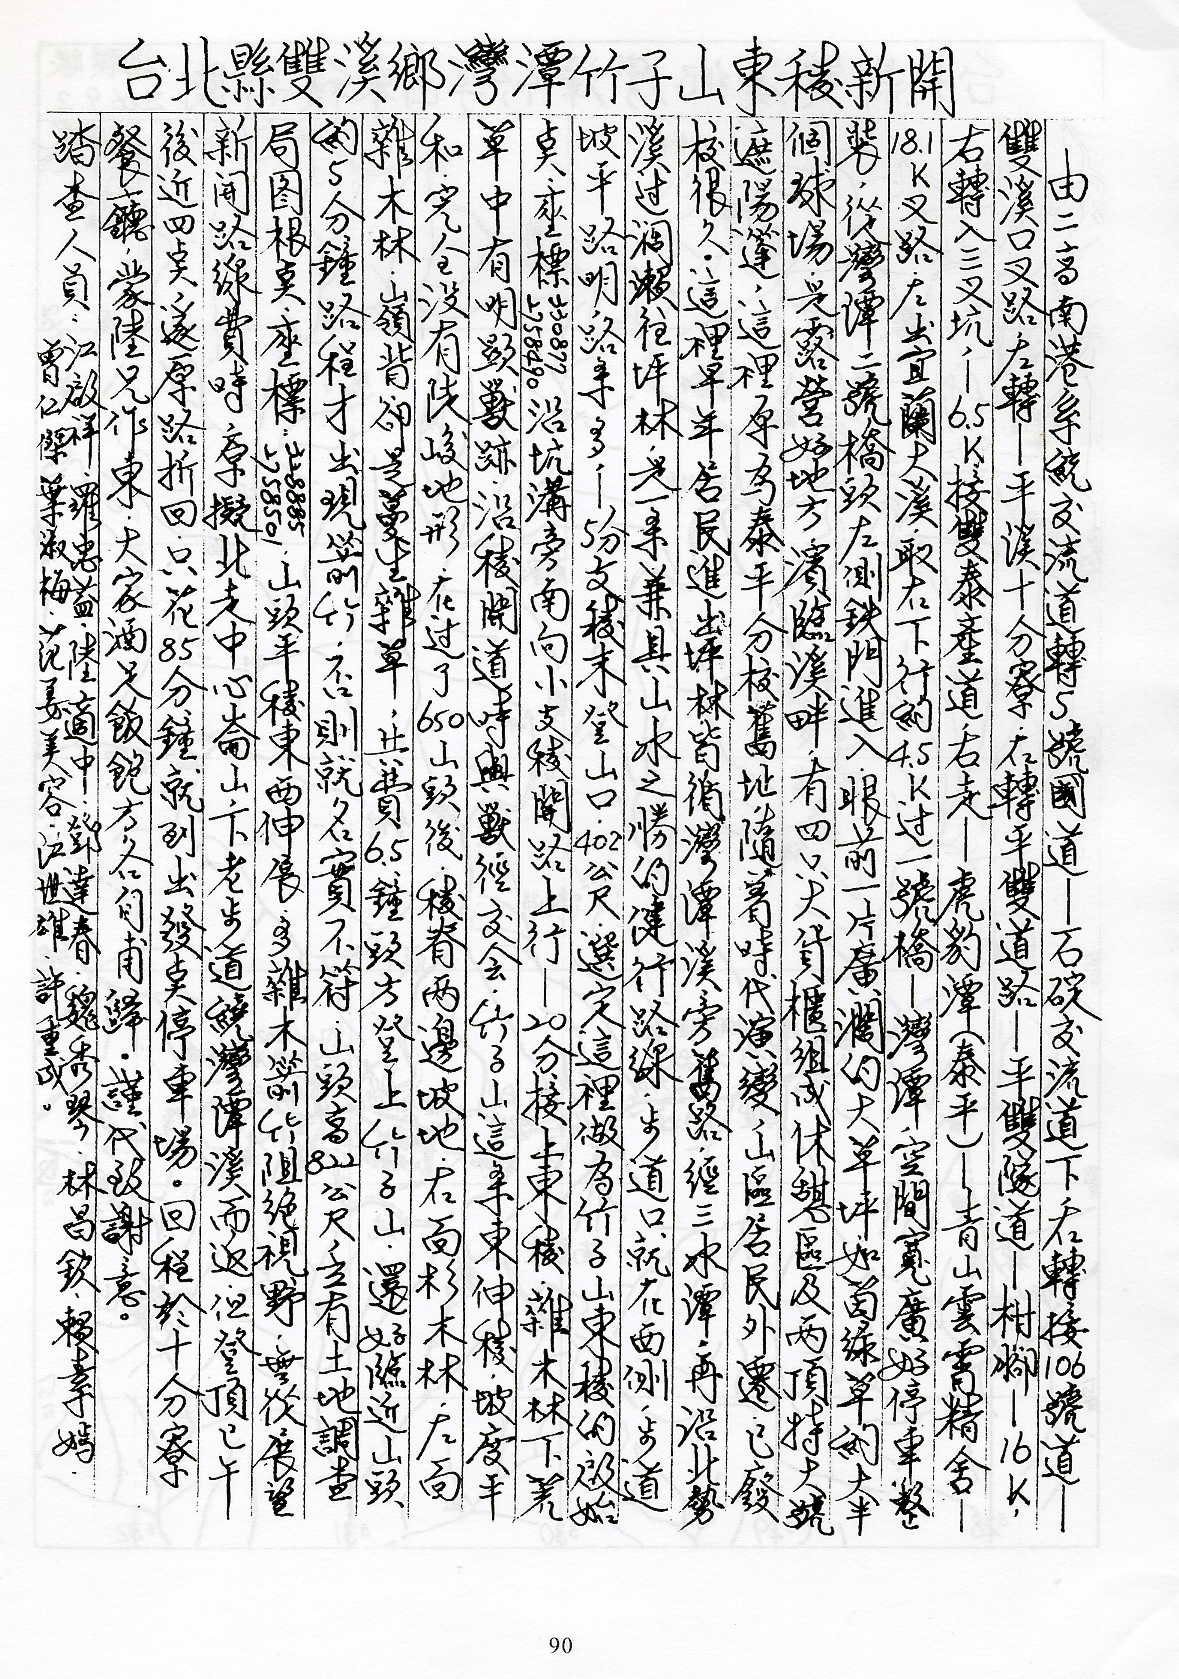 台北縣雙溪鄉灣潭竹子山東稜新開
由二高南港系統交流道轉5號國道—石碇交流道下右轉接106號道—
雙溪口叉路左轉—平溪十分寮右轉平雙道路—平雙隧道—柑腳—16K,
右轉入三叉坑—6.5K接雙泰產道右走—虎豹潭(泰平)—青山雲霄精舍—
18.1K叉路左出宜蘭大溪取右下行約4.5K过一號橋—灣潭,空間寬廣好停車整
裝,從灣潭二號橋頭左側鉄門進入,眼前一片廣濶的大草坪如茵綠草約大半
個球場,是露營好地方,濱臨溪畔,有四只大貨櫃組成休憩區及两頂特大號
遮陽蓬,這裡原為泰平分校舊址,隨著時代演變,山區居民外遷,已廢
校很久。這裡早年居民進出坪林皆循灣潭溪旁舊路,經三水潭,再沿北勢
溪过濶瀨往坪林,是一条兼具山水之勝的健行路線,步道口就在西側,步道
坡平路明,路条多—5分支稜末登山口,402公尺,選定這裡做為竹子山東稜的啟始
奌,座標330877 2758490沿坑溝旁南向小支稜開路上行—20分接上東稜,雜木林下差
草中有明顯獸跡,沿稜開道時與獸徑交会,竹子山這条東伸稜,坡度平
和,完全没有陡峻地形,在过了650山頭後,稜脊两邊坡地,右面杉木林,左面
雜木林,山嶺背卻是蔓生雜草,共費6.5鐘頭方登上竹子山,還好臨近山頭
約5分鐘路程才出現箭竹,否則就名實不符,山頭高822公尺,立有土地調查
局图根奌,座標:328885 2758501,山頭平稜東西伸展,多雜木箭竹阻絕視野,無從展望
新開路線費時,原擬北走中心崙山下老步道繞灣潭溪而返,但登頂已午
後近四奌,遂原路折回,只花85分鐘就到出發奌停車場。回程於十分寮
餐廳,蒙陸兄作東,大家酒足飯飽方各自甫歸。謹代致謝意。
踏查人員:江啟祥,羅忠益,陸適中,鄧達春,魏秀琴,林昌欽,賴幸嫣,
曾仁傑,葉淑梅,范姜美容,江世雄,許重成。
90